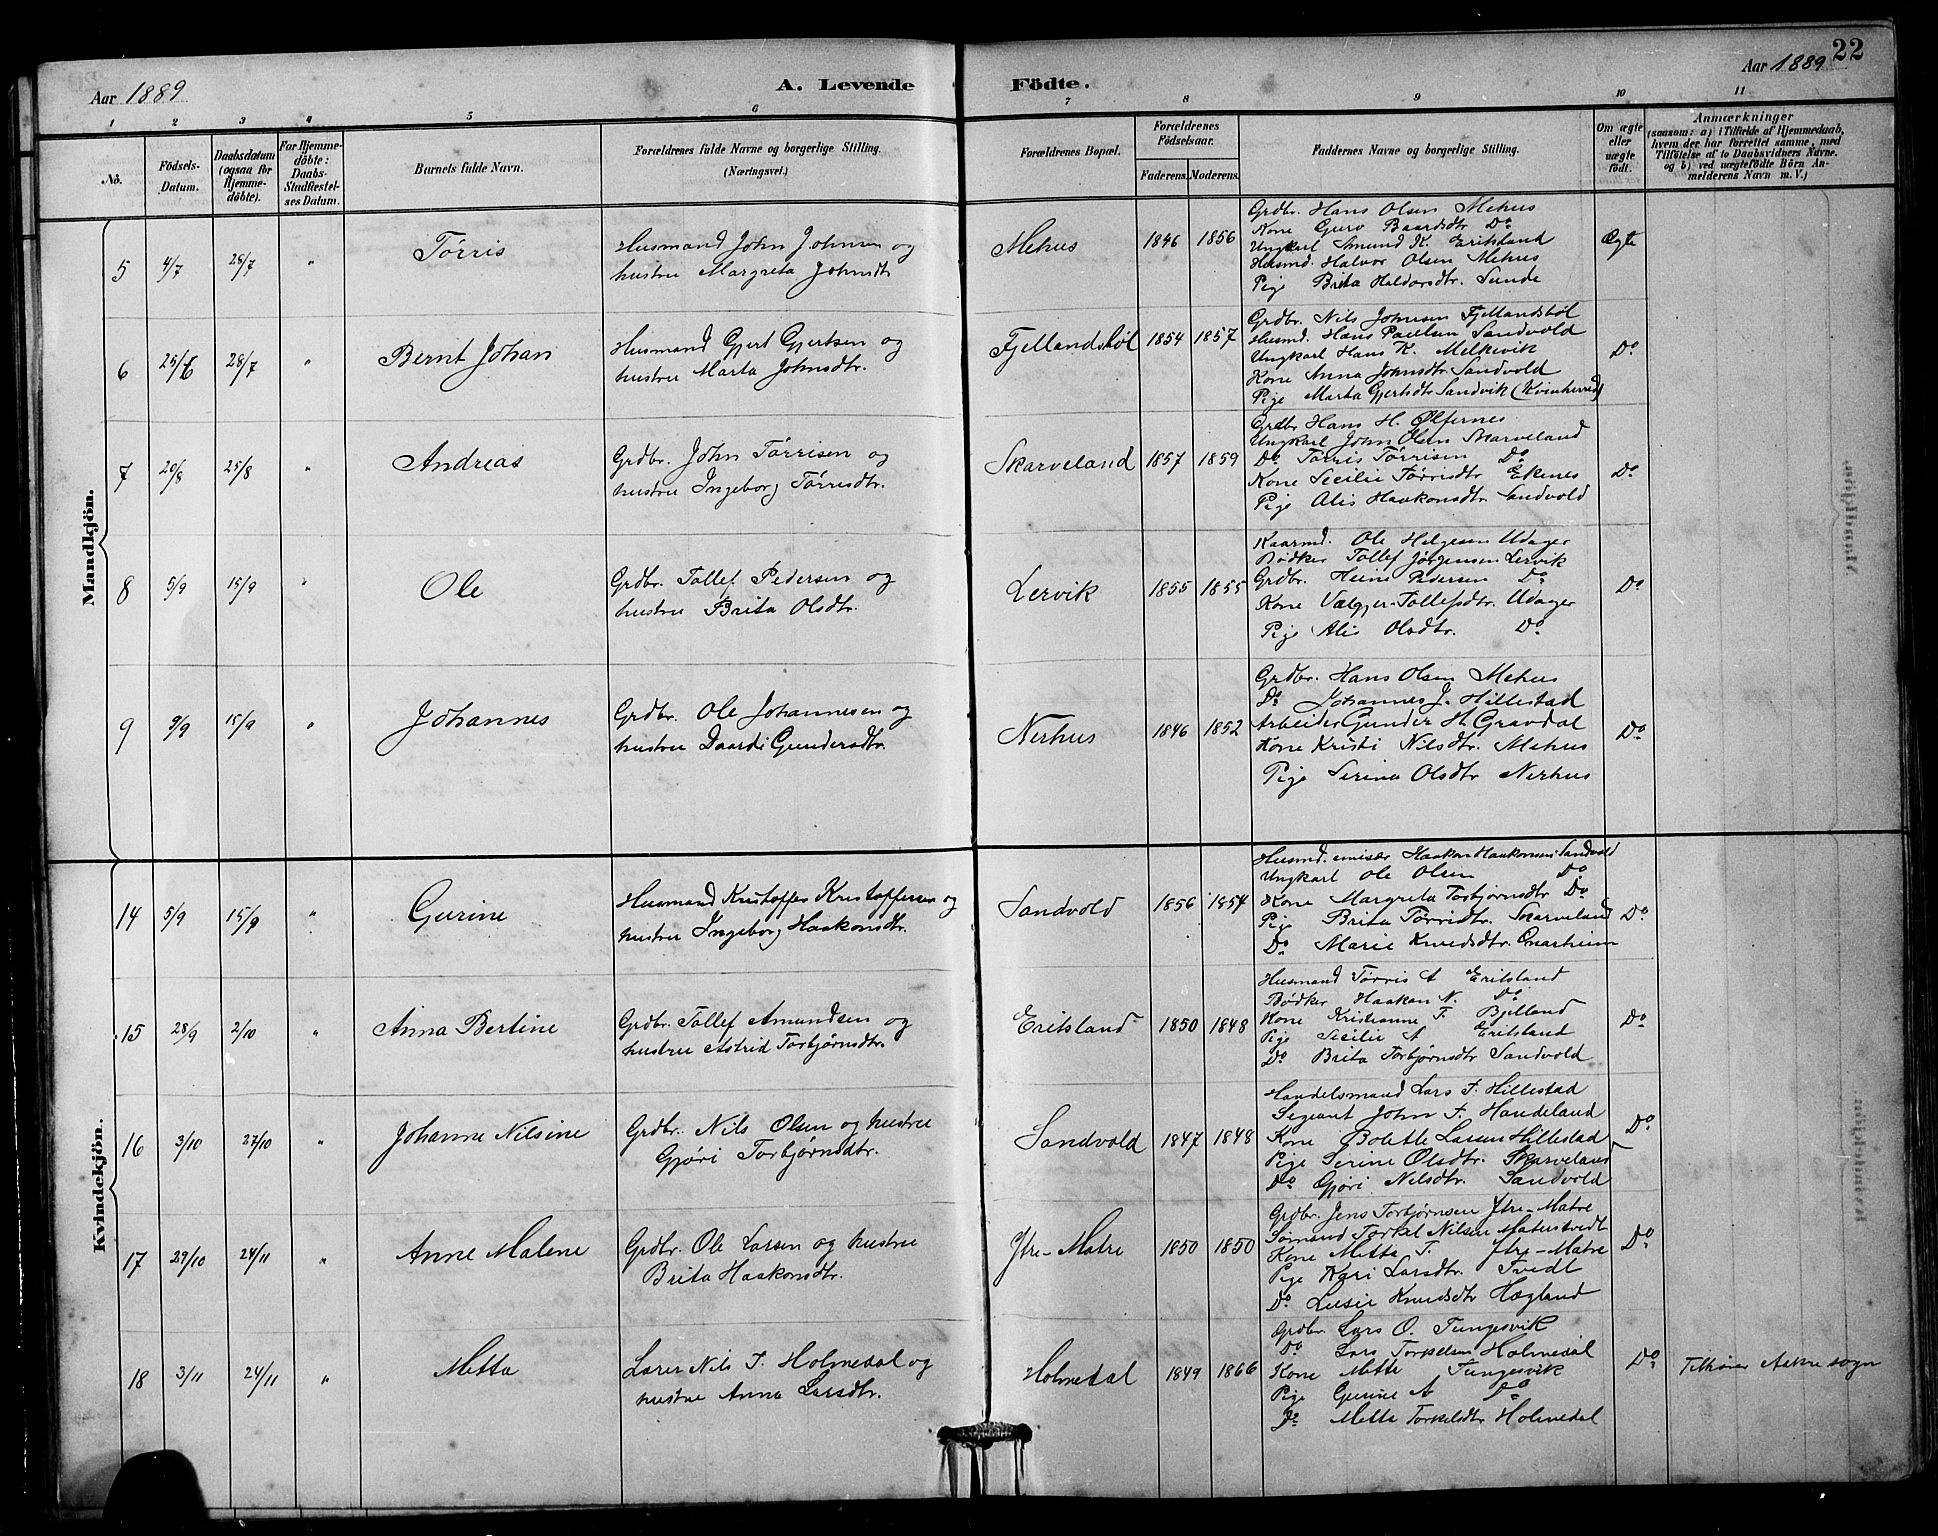 Aar 1889
A. Levende Födte.
Aar 1889
22
1 2 3 4 5 6 7 8 9 10 11
No.
Födsels-Datum.
Daabsdatum (ogsaa for Hjemmedöbte).
For Hjemmedöbte: Daabs-Stadfæstelses Datum.
Barnets fulde Navn.
Forældrenes fulde Navne og borgerlige Stilling.
(Næringsvei.)
Forældrenes Bopæl.
Forældrenes Födselsaar.
Faderens. Moderens.
Faddernes Navne og borgerlige Stilling.
Om ægte eller uægte født.
Anmærkninger
(saasom: a) i Tilfælde af Hjemmedaab, hvem der har forrettet samme, med Tilföielse af to Daabsvidners Navne, og b) ved uægtefödte Börn Anmelderens Navn m. V.)
Mandkjön.
5 4/7 28/7 " Tørris
Husmand John Johnsen og
hustru Margreta Johnsdtr
Mehus 1846 1856
Grdbr. Hans Olsen Mehus
Kone Guro Baardsdtr Do
Ungkarl Amund K. Eriksland
Husmd. Halvor Olsen Mehus
Pige Brita Haldorsdtr. Sunde
Ægte
6 25/6 28/7 " Bernt Johan
Husmand Gjert Gjertsen og
hustru Marta Johnsdtr.
Fjellandsbøl 1854 1857
Grdbr. Nils Johnsen Fjellandsbøl
Husmd. Hans Paulsen Sandvold
Ungkarl Hans K. Melkevik
Kone Anna Johnsdtr Sandvold
Pige Marta Gjertsdtr Sandvik (Kvinherred)
Do
7 20/8 25/8 " Andreas
Grdbr. John Tørrisen og
hustru Ingeborg Tørrisdtr.
Skarveland 1857 1859
Grdbr Hans H. Ølfernes
Ungkarl John Olsen Skarveland
Do Tørris Tørrisen Do
Kone Secilie Tørrisdtr Ekenes
Pige Alis Haakonsdtr Sandvold
Do
8 5/9 15/9 " Ole
Grdbr. Tollef Pedersen og
hustru Brita Olsdtr.
Lervik 1855 1855
Kaarmd. Ole Helgesen Udager
Bødker Tollef Jørgensen Lervik
Grdbr. Heine Pedersen Do
Kone Valgjer Tollefsdtr. Udager
Pige Alis Olsdtr. Do
Do
9 9/9 15/9 " Johannes
Grdbr. Ole Johannesen og
hustru Daardi Gundersdtr.
Nerhus 1846 1852
Grdbr. Hans Olsen Mehus
Do Johannes J. Hillestad
Arbeider Gunder H. Gravdal
Kone Kristi Nilsdtr. Mehus
Pige Serina Olsdtr Nerhus
Do
Kvindekjön.
14 5/9 15/9 " Gurine
Husmand Kristoffer Kristoffersen og
hustru Ingeborg Haakonsdtr.
Sandvold 1856 1854
Husmd. emisær Haakon Haakonsen Sandvold
Ungkarl Ole Olsen Do
Kone Margreta Torbjørnsdtr Do
Pige Brita Tørrisdtr. Skarveland
Do Marie Knudsdtr. Onarheim
Do
15 28/9 2/10 " Anna Bertine
Grdbr. Tollef Amundsen og
hustru Astrid Torbjørnsdtr.
Eriksland 1850 1848
Husmand Tørris A Eriksland
Bødker Haakon N. Do
Kone Kristianne T. Bjelland
Pige Secilie A Eriksland
Do Brita Torbjørnsdtr Sandvold
Do
16 3/10 27/10 " Johanne Nilsine
Grdbr. Nils Olsen og hustru
Gjøri Torbjørnsdtr.
Sandvold 1847 1848
Handelsmand Lars T. Hillestad
Segeant John T. Handeland
Kone Bolette Larsen Hillestad
Pige Serine Olsdtr. Skarveland
Do Gjøri Nilsdtr. Sandvold
Do
17 29/10 24/11 " Anne Malene
Grdbr. Ole Larsen og hustru
Brita Haakonsdtr.
Ytre-Matre 1850 1850
Grdbr. Jens Torbjørnsen Ytre-Matre
Sømand Torkel Nilsen Matretvedt
Kone Metta T. Ytre-Matre
Pige Kari Larsdtr. Tvedt
Do Lusie Knudsdtr Hægland
Do
18 3/11 24/11 " Metta
Lærer Nils T. Holmedal og
hustru Anna Larsdtr.
Holmedal 1849 1866
Grdbr Lars O. Tungesvik
Do Lars Torkelsen Holmedal
Kone Mette Tungesvik
Pige Gurine A Do
Do Metta Torkelsdtr Holmedal
Do
Tilhører Aakre sogn